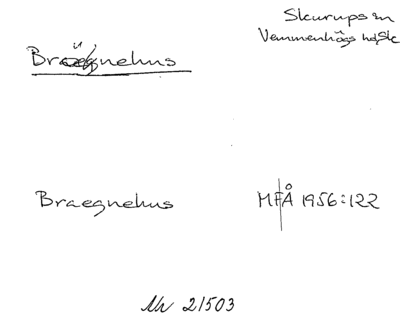 Skurups sn
Vemmenhögs hd, Sk
Brügnehus
Braegnehus
MFÅ 1956:122
Nr 21503